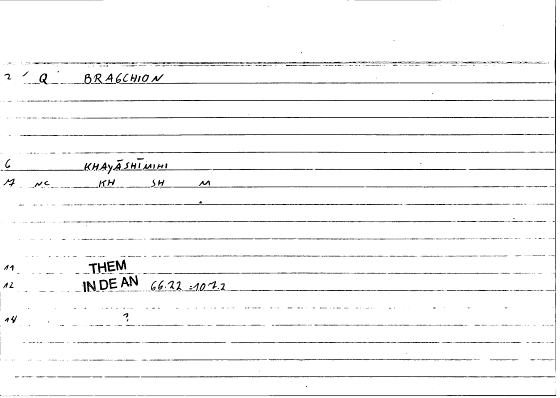 2 ' Q BRAGCHION
6 KHAYĀSHĪMIHI
17 NC KH SH M
11 THEM
12 IN DE AN 66.22 =107.2
14 ?